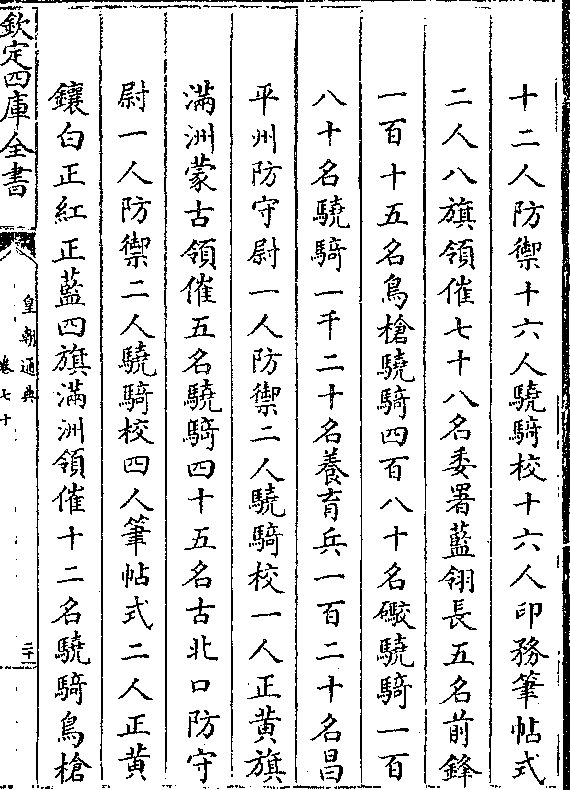 十二人防禦十六人驍騎校十六人印務筆帖式
二人八旗領催七十八名委署藍翎長五名前鋒
一百十五名鳥槍驍騎四百八十名礮驍騎一百
八十名驍騎一千二十名養育兵一百二十名昌
平州防守尉一人防禦二人驍騎校一人正黄旗
滿洲蒙古領催五名驍騎四十五名古北口防守
尉一人防禦二人驍騎校四人筆帖式二人正黄
鑲白正紅正藍四旗滿洲領催十二名驍騎鳥槍
欽定四庫全書
皇朝通典
卷七十
二十一